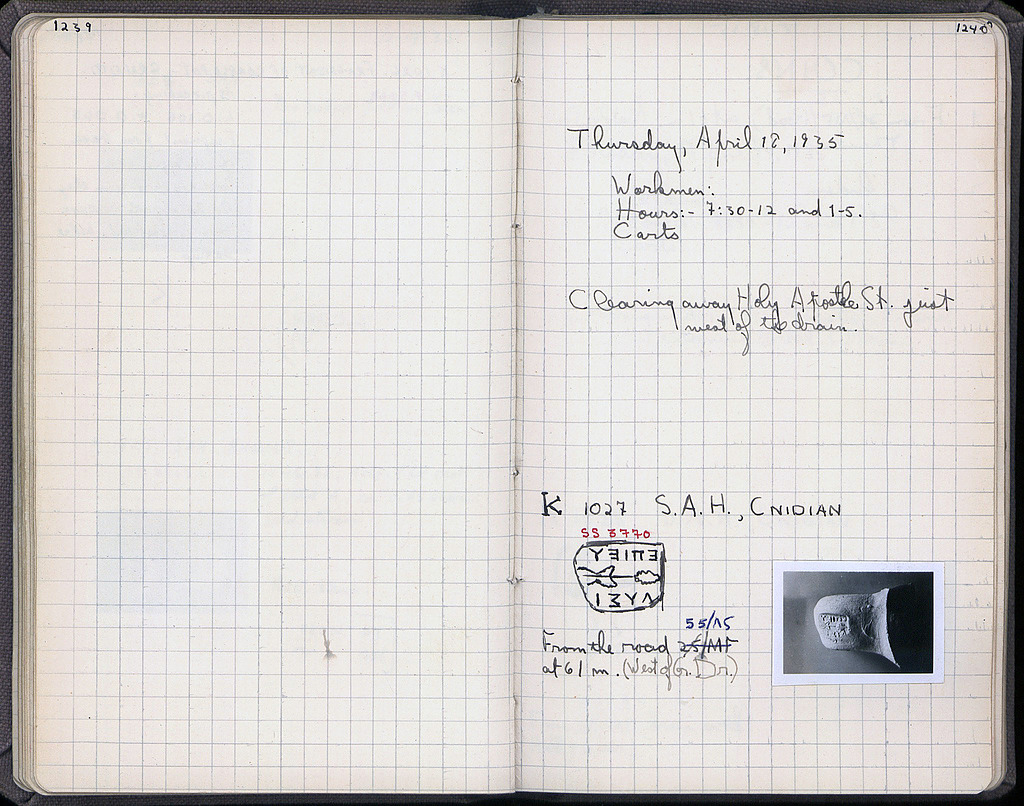 1239
1240
Thursday, April 18, 1935
Workmen:
Hours:- 7:30-12 and 1-5.
Carts
Clearing away Holy Apostle St. just
west of the drain.
K 1027 S.A.H., CNIDIAN
SS 3770
ΥƎΙΠƎ
ΙΣΥΛ
55/ΛΣ
From the road
at 61 m. (West of Gr. Dr.)